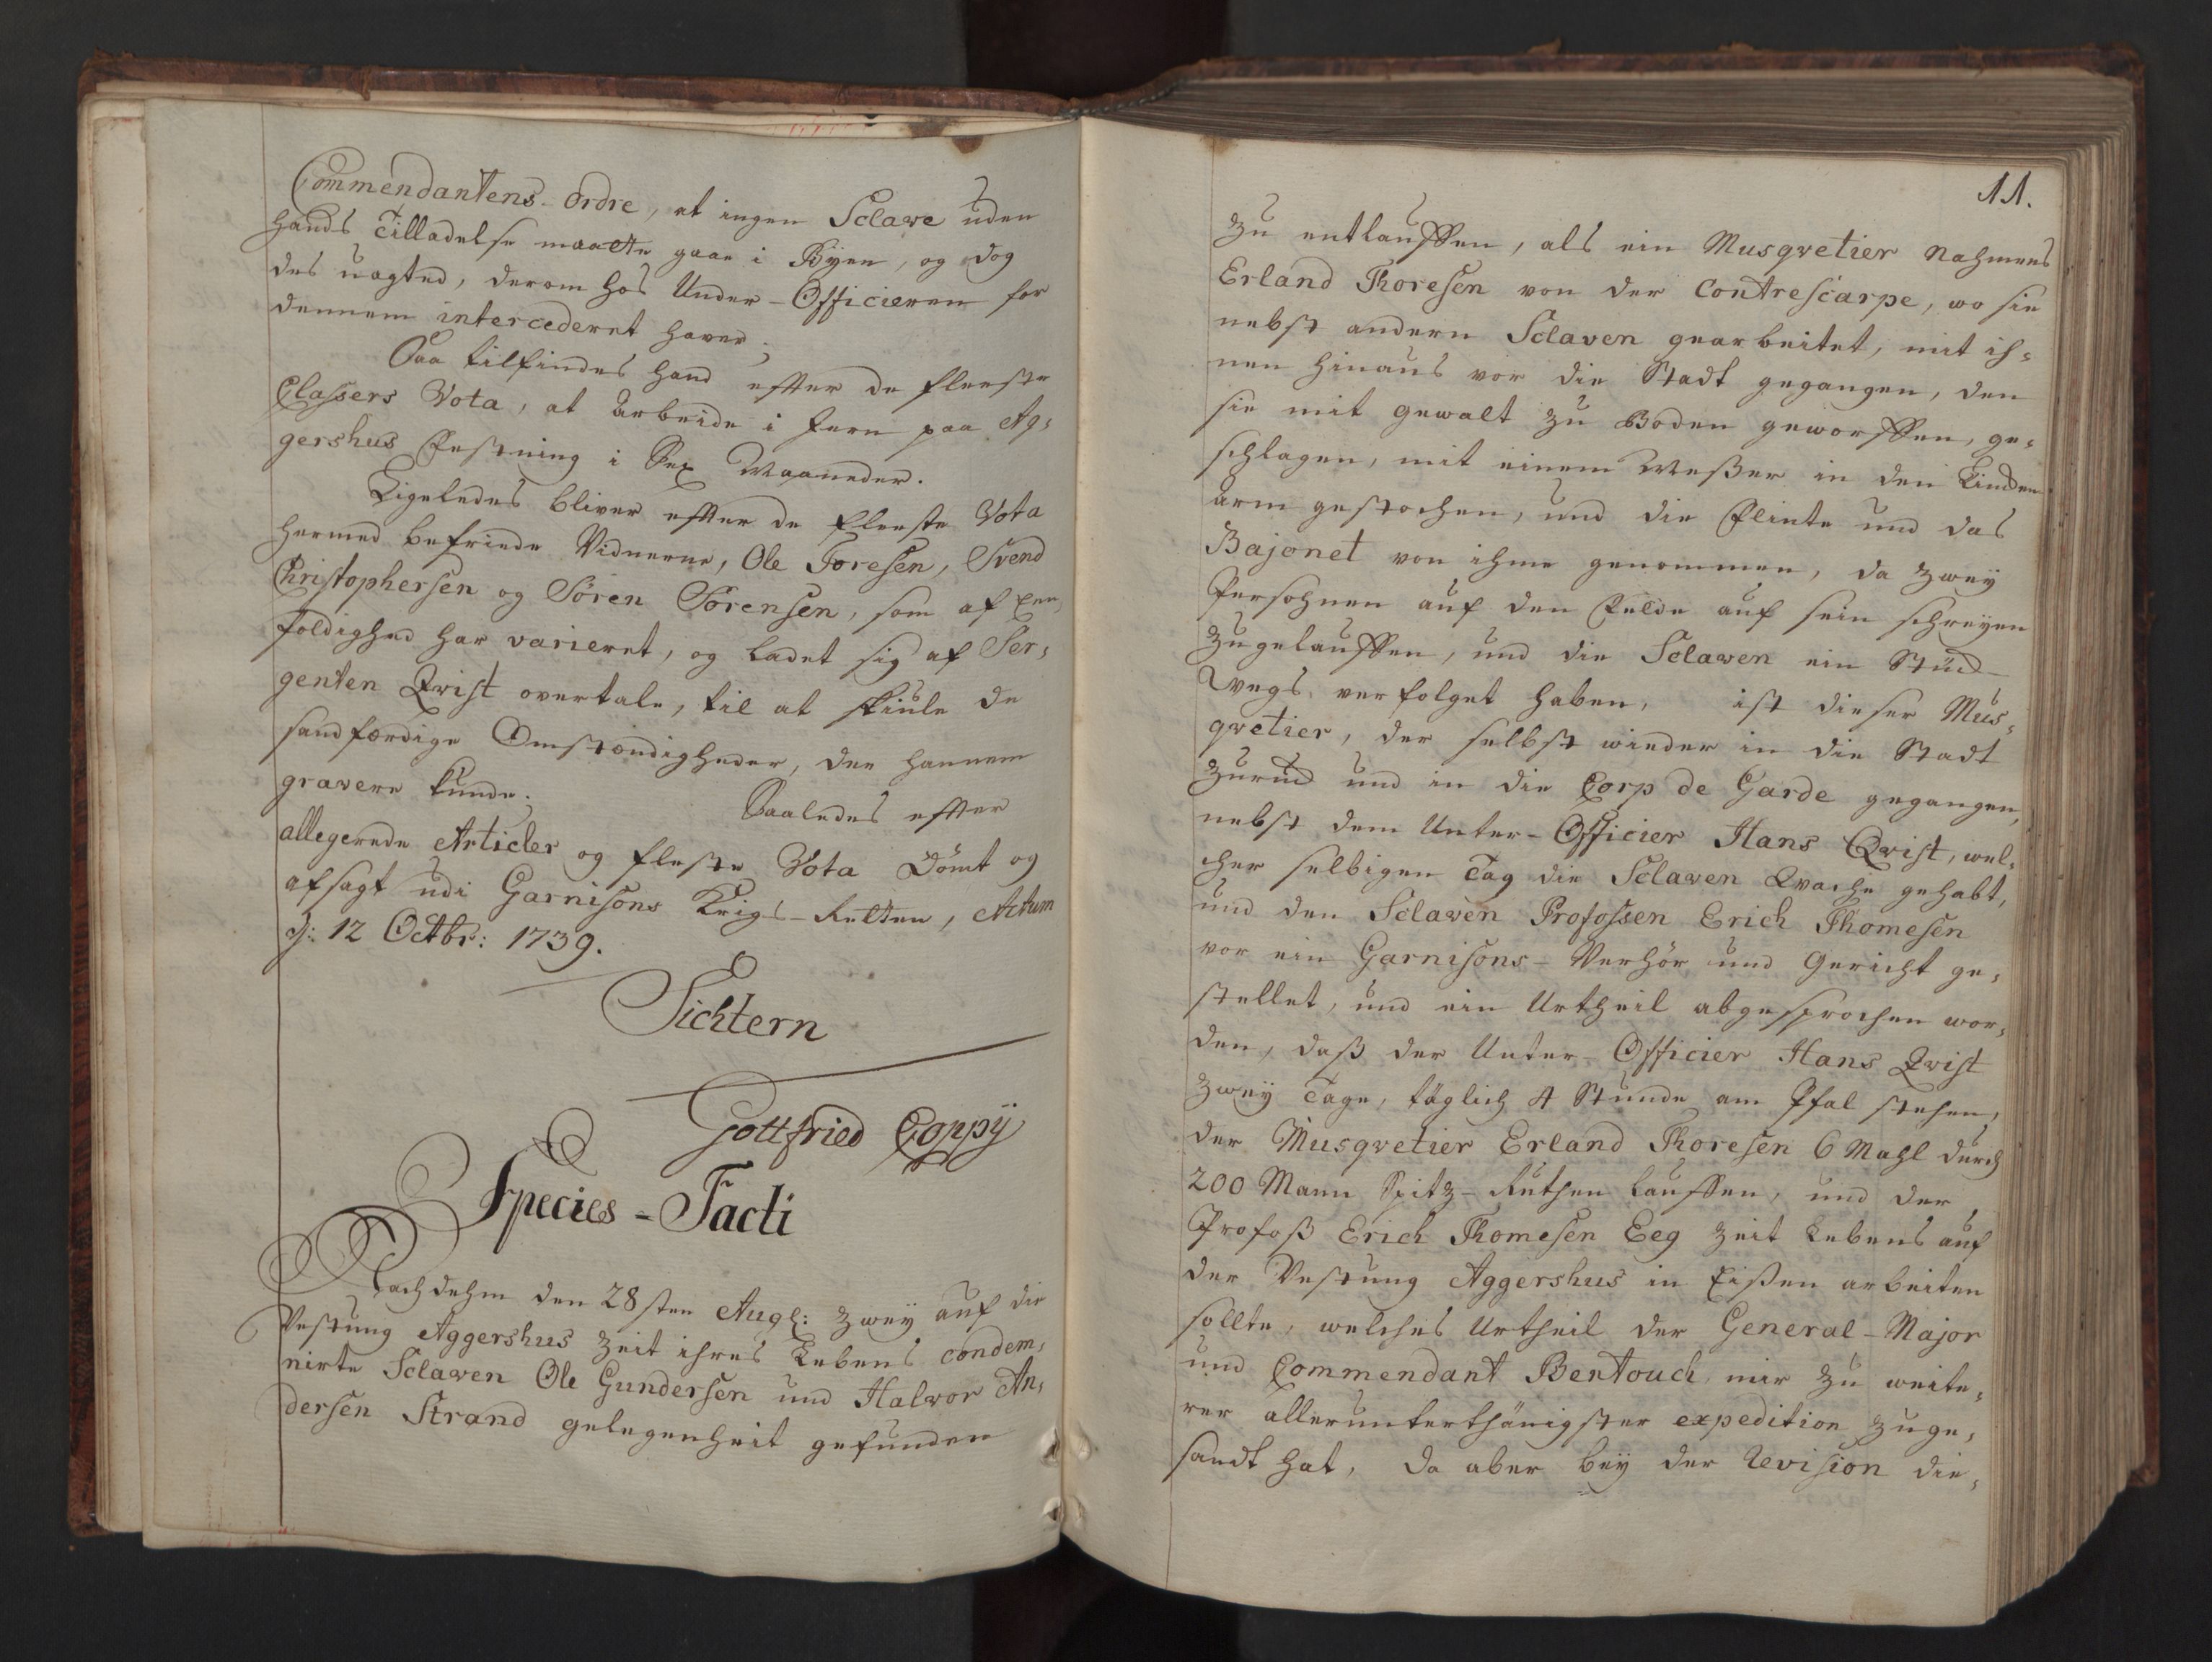 Commendantens Ordre, at ingen Sclave uden
hands Tilladelse maatte gaae i Byen, og dog
des uagted, derom hos Under-Officieren for
dennem intercederet haver;
Saa tilfindes hand efter de fleeste
Classers Vota, at arbeide i Jern paa Ag-
gershus Festning i Sex Maaneder.
Ligeledes bliver efter de fleeste Vota
hermed befriede Vidnerne, Ole Toresen, Svend
Christophersen og Sören Sörensen, som af Een-
foldighed har varieret, og ladet sig af Ser-
genten Qvist overtale, til at skiule de
sandfærdige Omstændigheder, der hannem
gravere kunde.
Saaledes efter
allegerede Articler og fleste Vota Dömt og
afsagt udi Garnisons Krigs-Retten, Actum
d: 12 Octbr: 1739.
Sichtern
Gottfried Coppÿ
Species-Facti
Nachdehm den 28sten Aug: zweÿ auf die
Vestung Aggershus Zeit ihres Lebens condem-
nirte Sclaven Ole Gundersen und Halvor An-
dersen Strand gelegenheit gefunden
11.
zu entlauffen, als ein Musqvetier Nahmens
Erland Thoresen von der Contrescarpe, wo sie
nebst andern Sclaven gearbeitet, mit ih-
nen hinaus vor die Stadt gegangen, den
sie mit gewalt zu Boden geworffen, ge-
schlagen, mit einem Meßer in den Linden
arm gestochen, und die Flinte und das
Bajonet von ihme genommen, da zweÿ
Persohnen auf den Felde auf sein schreÿen
zugelauffen, und die Sclaven ein Stück
Wegs verfolget haben, ist dieser Mus-
qvetier, der selbst wieder in die Stadt
zurück und in die Corp de Garde gegangen,
nebst dem Unter-Officier Hans Qvist, wel-
cher selbigen Tag die Sclaven Wache gehabt,
und den Sclaven Profossen Erich Thomesen
vor ein Garnisons-Verhör und Gericht ge-
stellet, und ein Urtheil abgesprochen wor-
den, daß der Unter-Officier Hans Qvist
zweÿ Tage, täglich 4 Stunde am Pfal stehen,
der Musqvetier Erland Thoresen 6 Mahl durch
200 Mann Spitz-Ruthen lauffen, und der
Profoß Erich Thomesen Eeg Zeit Lebens auf
der Vestung Aggershus in Eißen arbeiten
sollte, welches Urtheil der General-Major
und Commendant Bertouch mir zu weite-
rer allerunterthänigster expedition zuge-
sandt hat, da aber beÿ der Revision die-